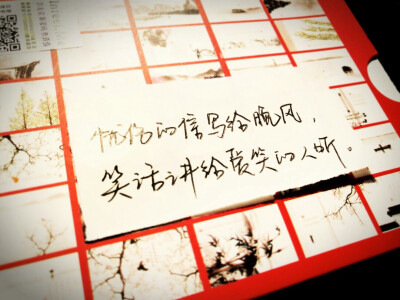 忧伤的信写给晚风，
笑话讲给爱笑的人听。